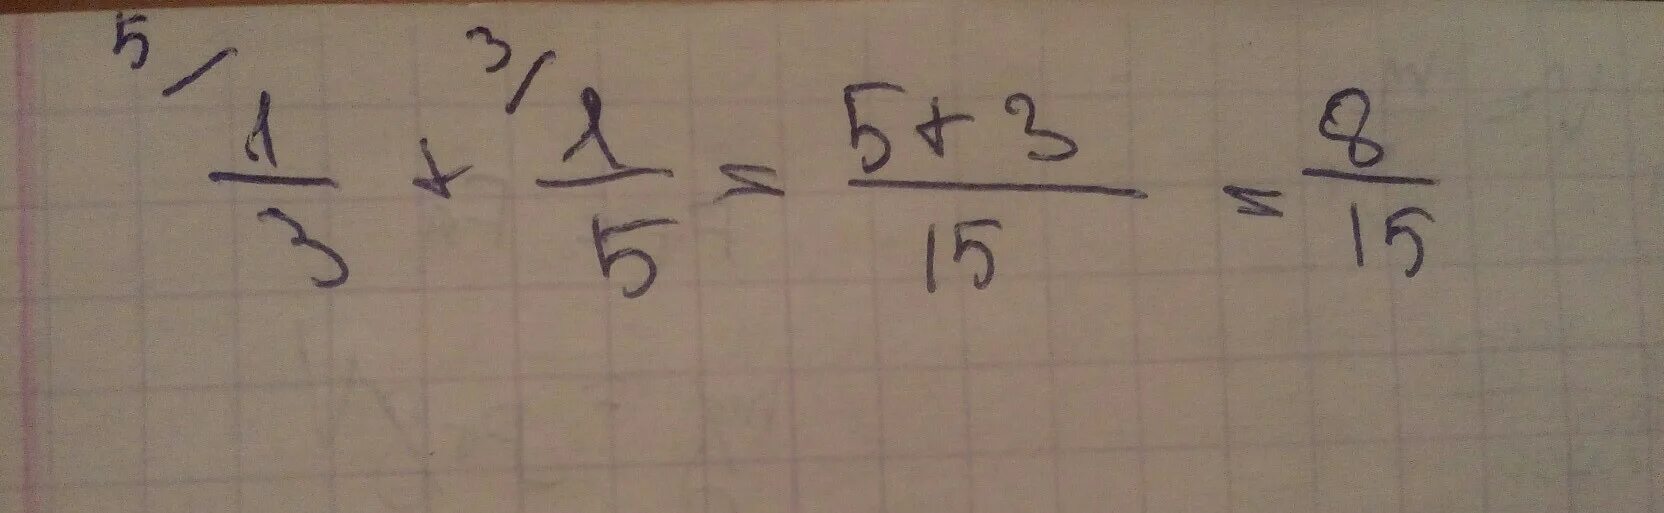 5/ 1/3 + 3/ 1/5 = (5+3)/15 = 8/15